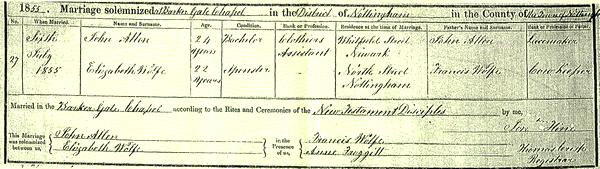 1855. Marriage solemnized at Barker Gate Chapel in the District of Nottingham in the County of the Town of
No. When Married. Name and Surname. Age. Condition. Rank or Profession. Residence at the time of Marriage. Father's Name and Surname. Rank or Profession of Father.
27 Sixth July 1855 John Allen 24 years Bachelor Clothiers Assistant Street Newark John Allen Lacemaker
Elizabeth Wolfe 22 years Spinster North Street Nottingham Francis Wolfe Cow Keeper
Married in the Barker Gate Chapel according to the Rites and Ceremonies of the New Testament Disciples by me,
This Marriage was solemnized between us, John Allen Elizabeth Wolfe in the Presence of us, Francis Wolfe Anne
Registrar